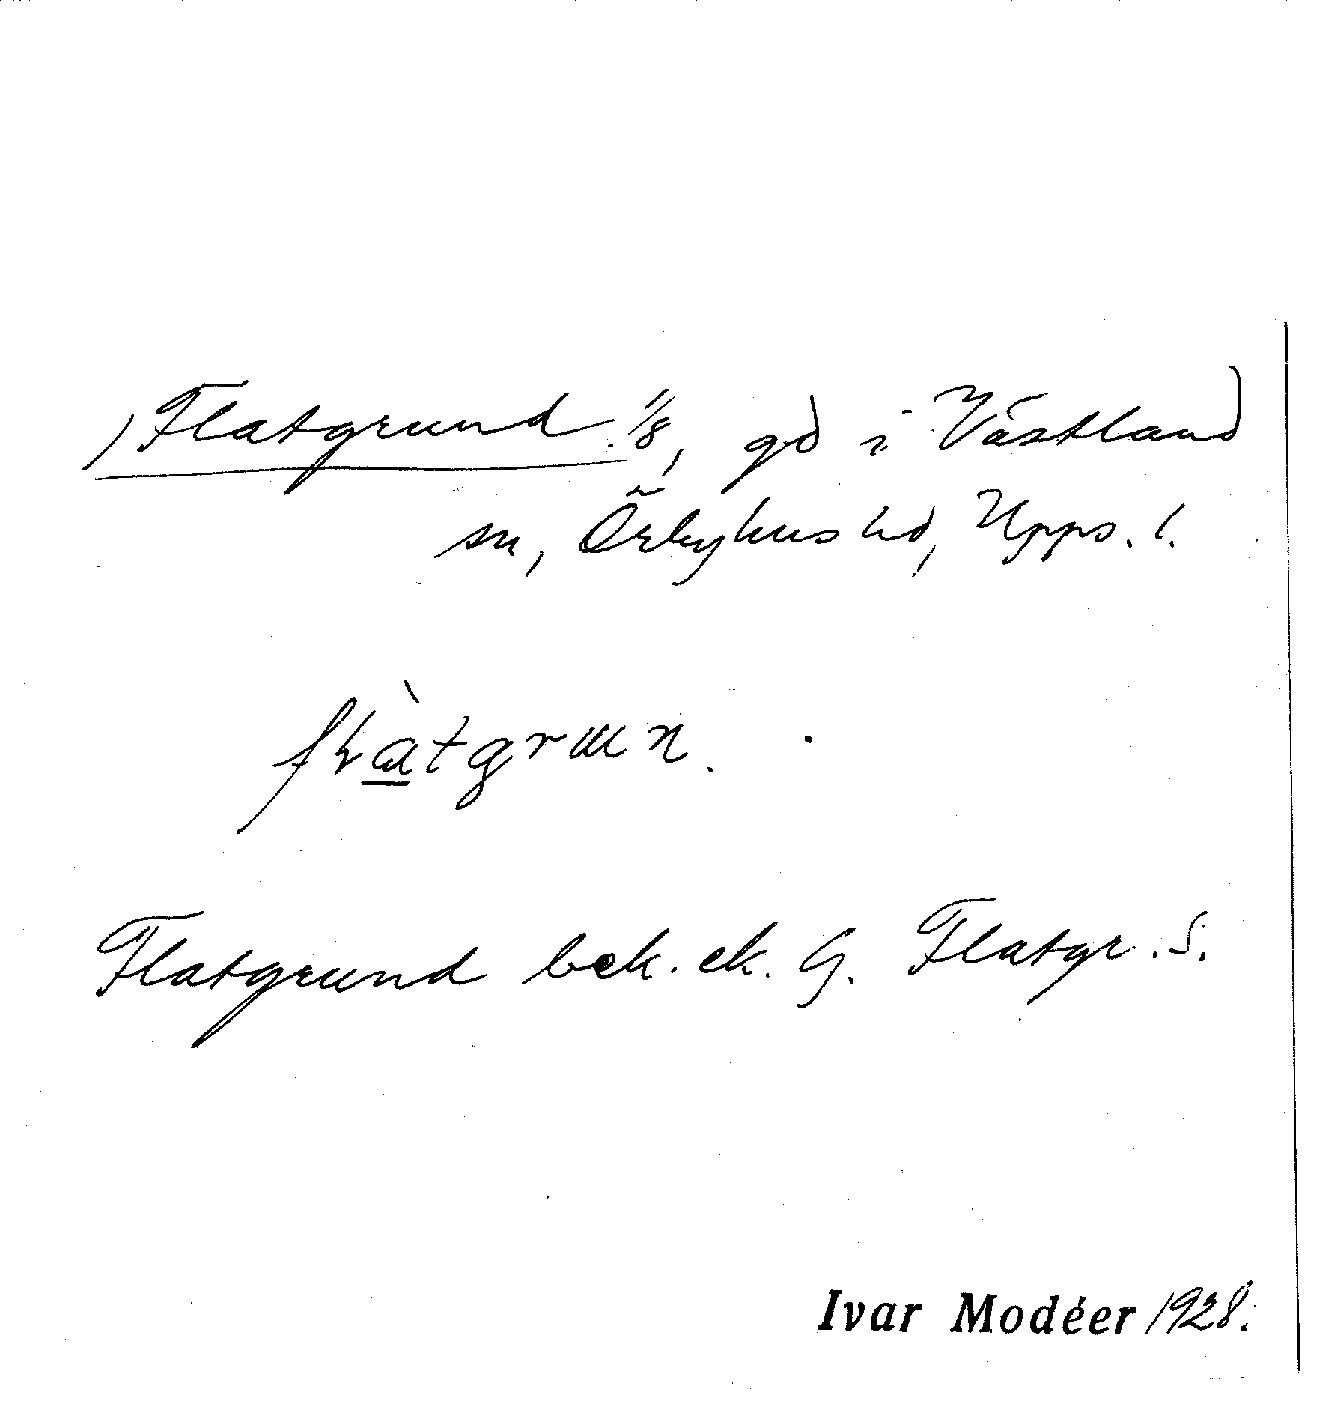 ) Flatgrund 1/8, gd i Västland
sn, Örbyhus hd, Upps. l.
flàtgrun.
Flatgrund bek. ek. G. Flatgr. S.
Ivar Modéer 1928.